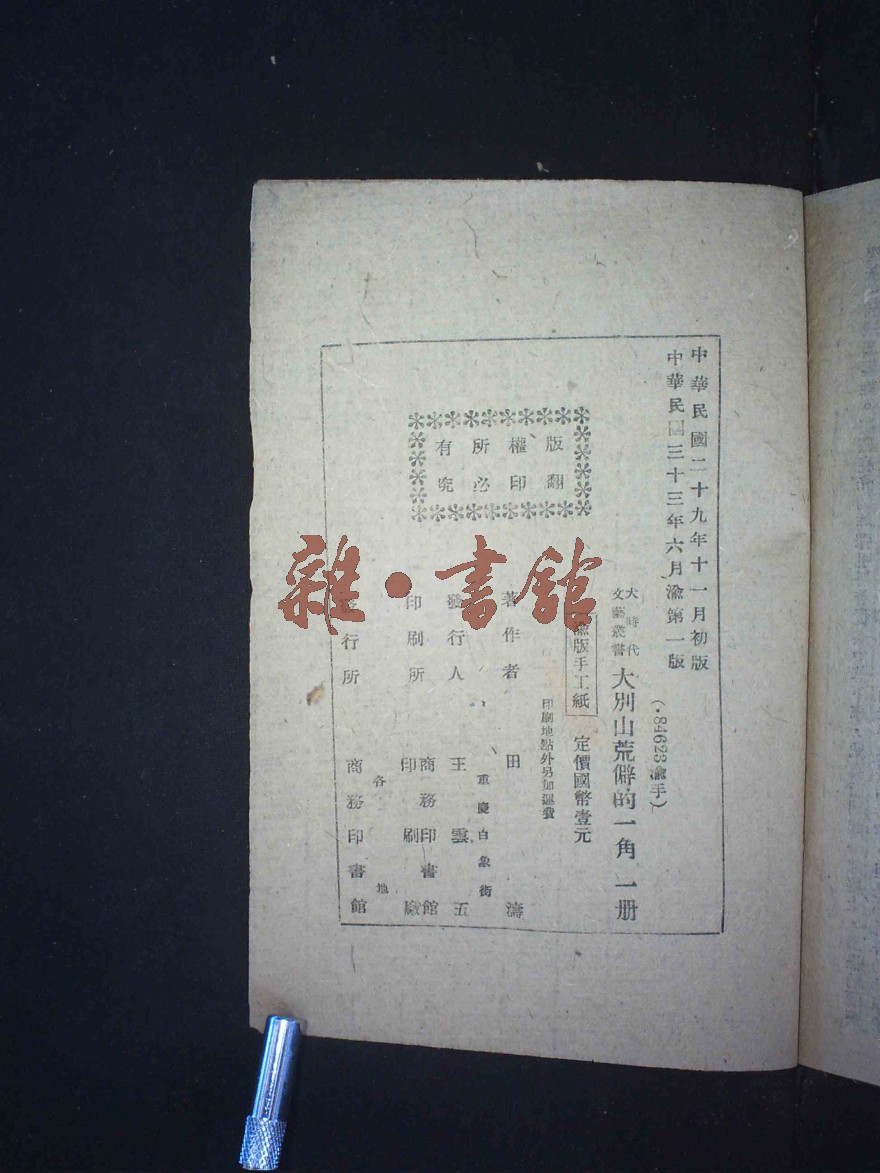 中華民國二十九年十一月初版
中華民國三十三年六月渝第一版
(·84623渝手)
大時代
文藝叢書
大別山荒僻的一角 一册
渝版手工紙
定價國幣壹元
印刷地點外另加運費
版權所有
翻印必究
著作者 田濤
重慶白象街
發行人 王雲五
印刷所 商務印書館
印刷廠
各地
發行所 商務印書館
雜·書館